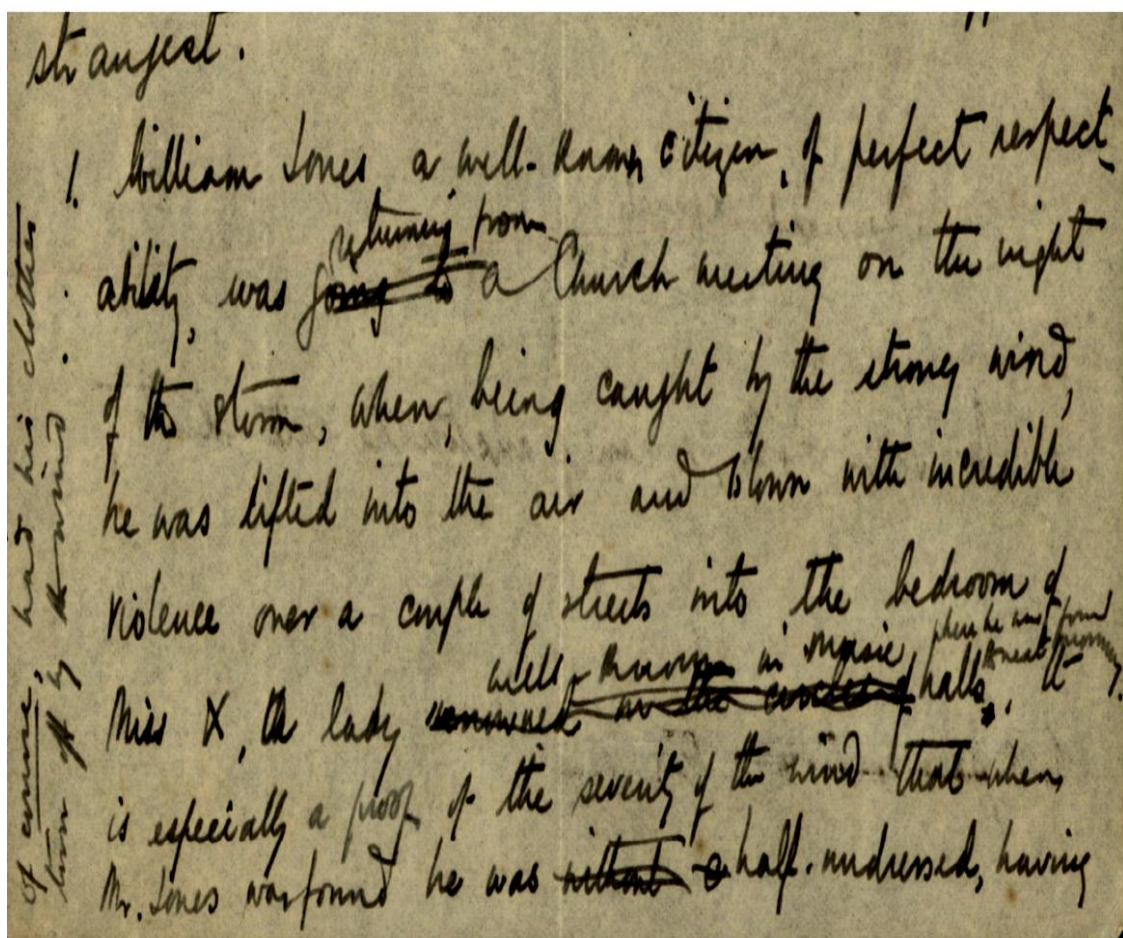 strangest.
1. William Jones a well-known citizen, of perfect respect-
returning from
ability, was going to a Church meeting on the night
of the storm, when, being caught by the strong wind,
he was lifted into the air and blown with incredible
violence over a couple of streets into the bedroom of
well-known in music where he was found
Miss X, the lady renowned in the circles of halls, next morning. It
is especially a proof of the severity of the wind that when
Mr. Jones was found he was without a half-undressed, having
of course, had his clothes
torn off by the wind.